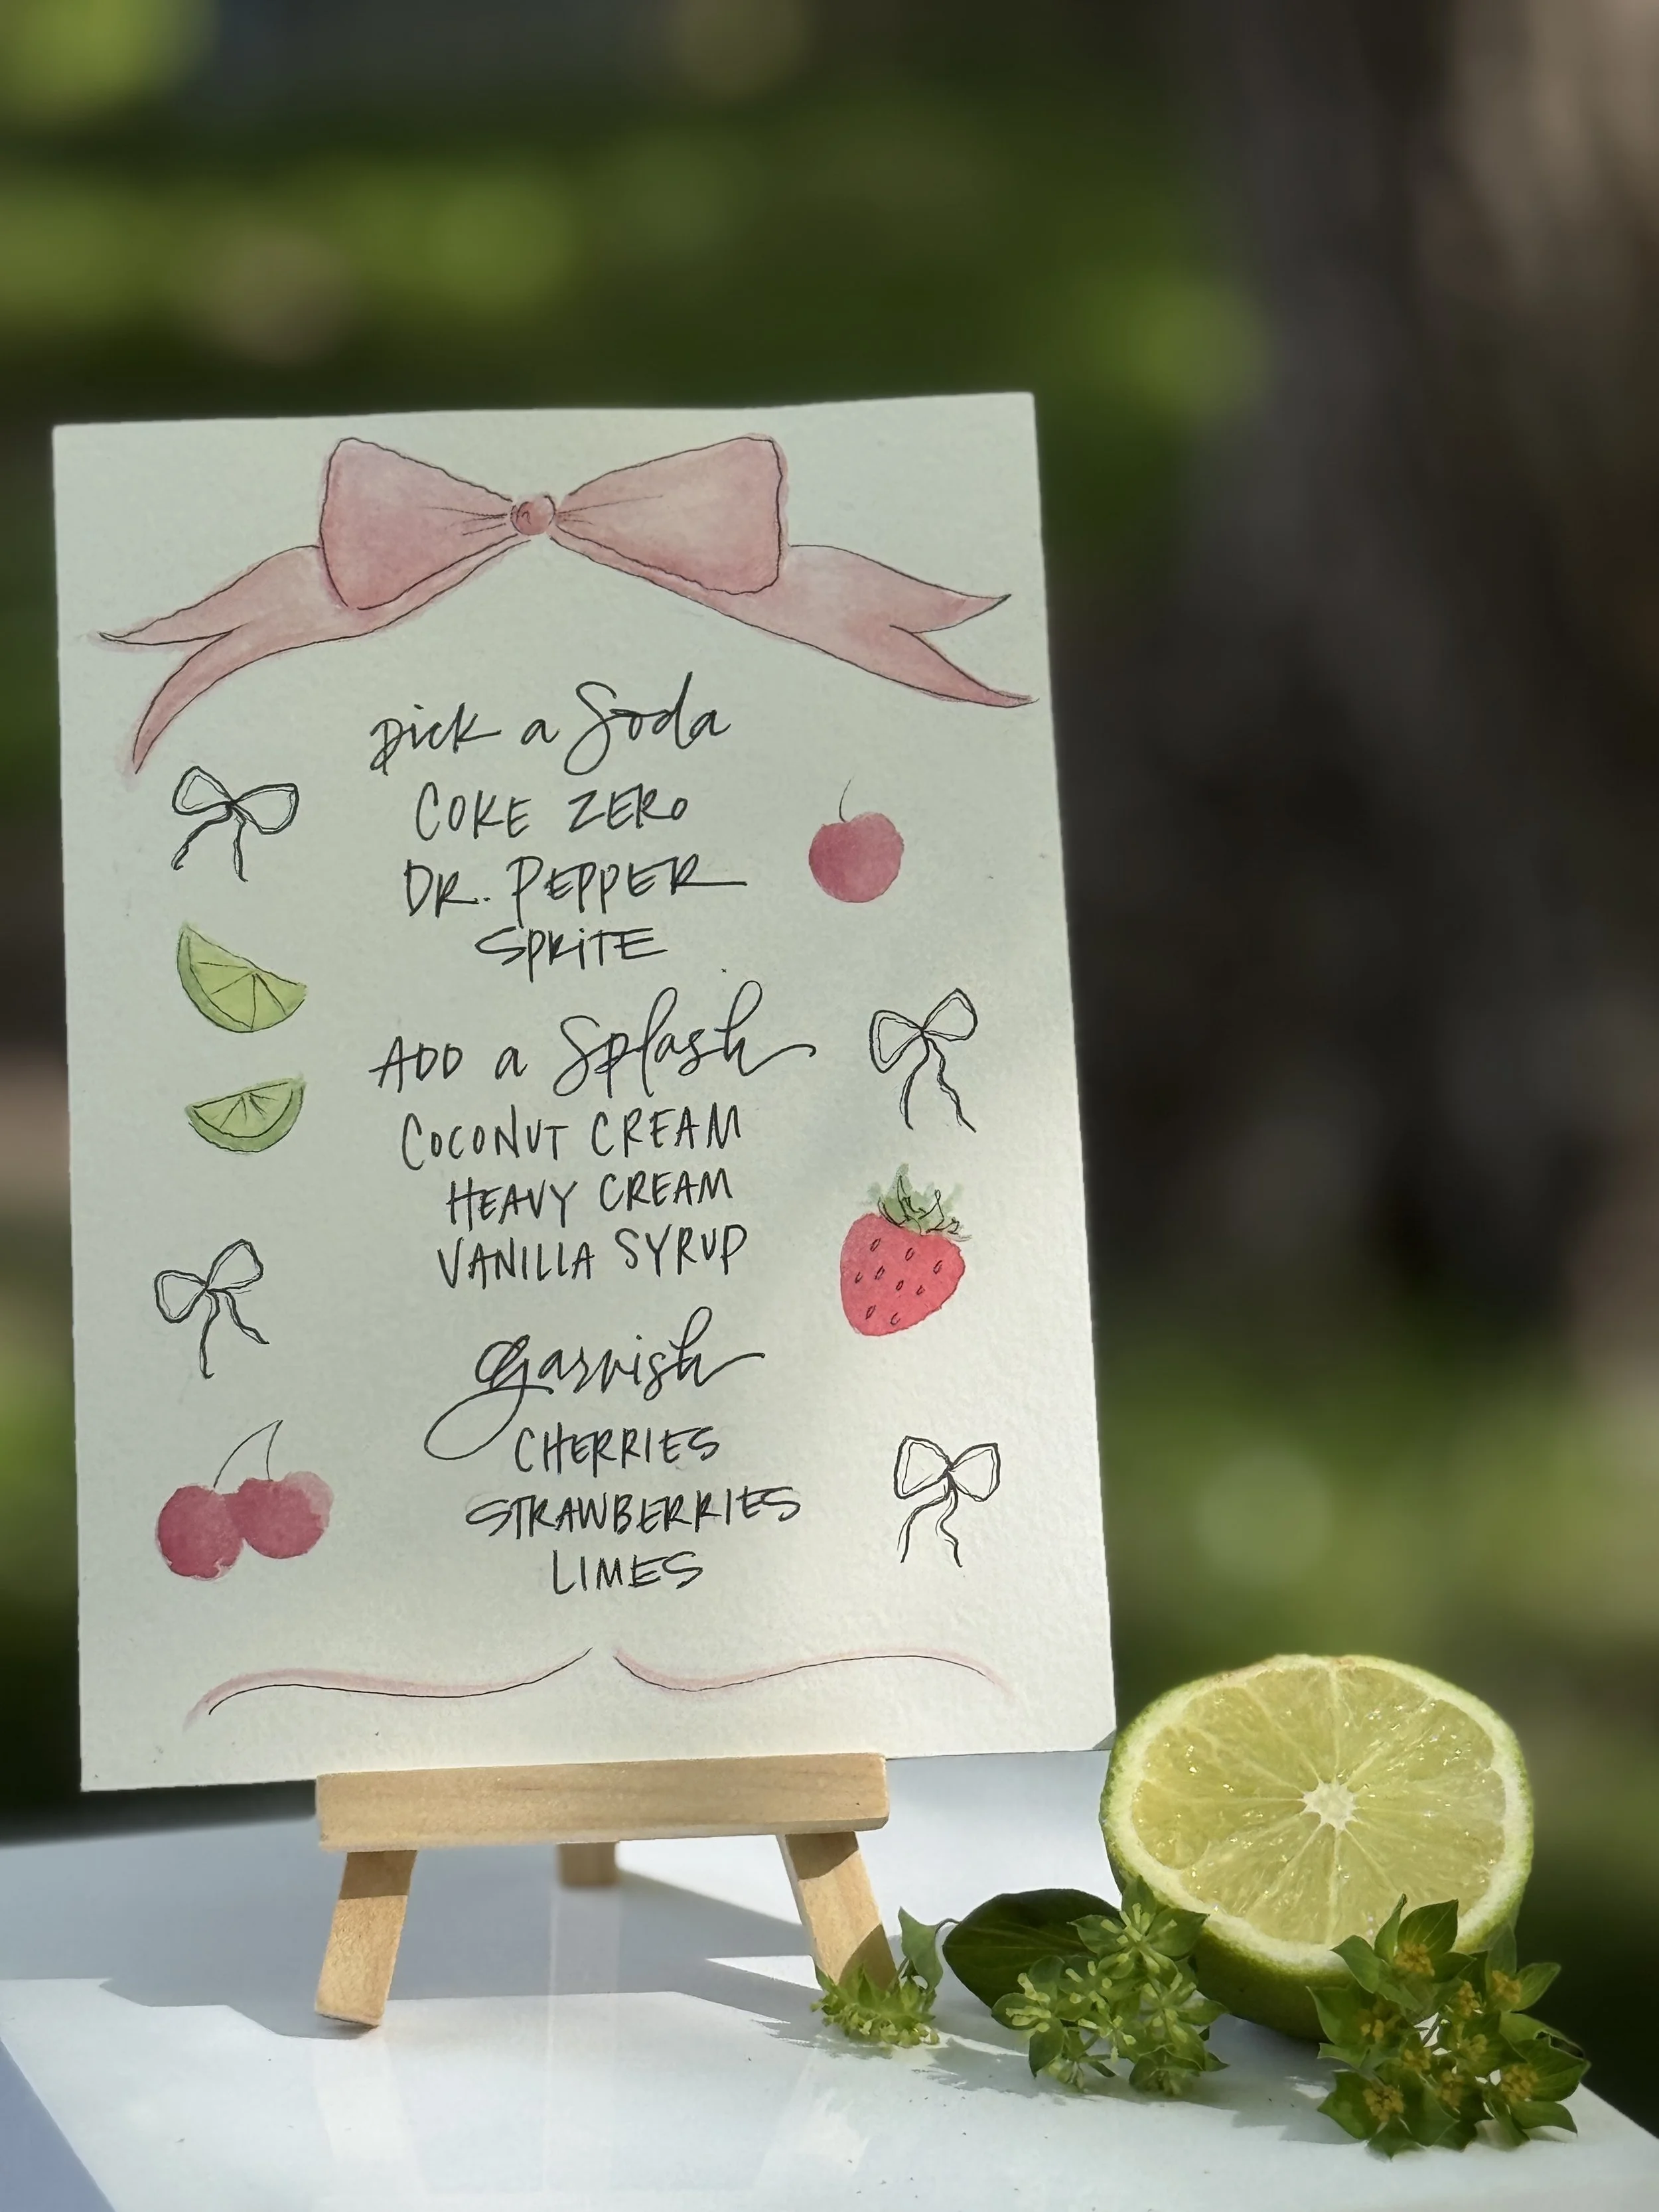 pick a Soda
COKE ZERO
DR. PEPPER
SPRiTE
ADD a Splash
COCONUT CREAM
HEAVY CREAM
VANILLA SYRUP
Garnish
CHERRIES
STRAWBERRIES
LIMES